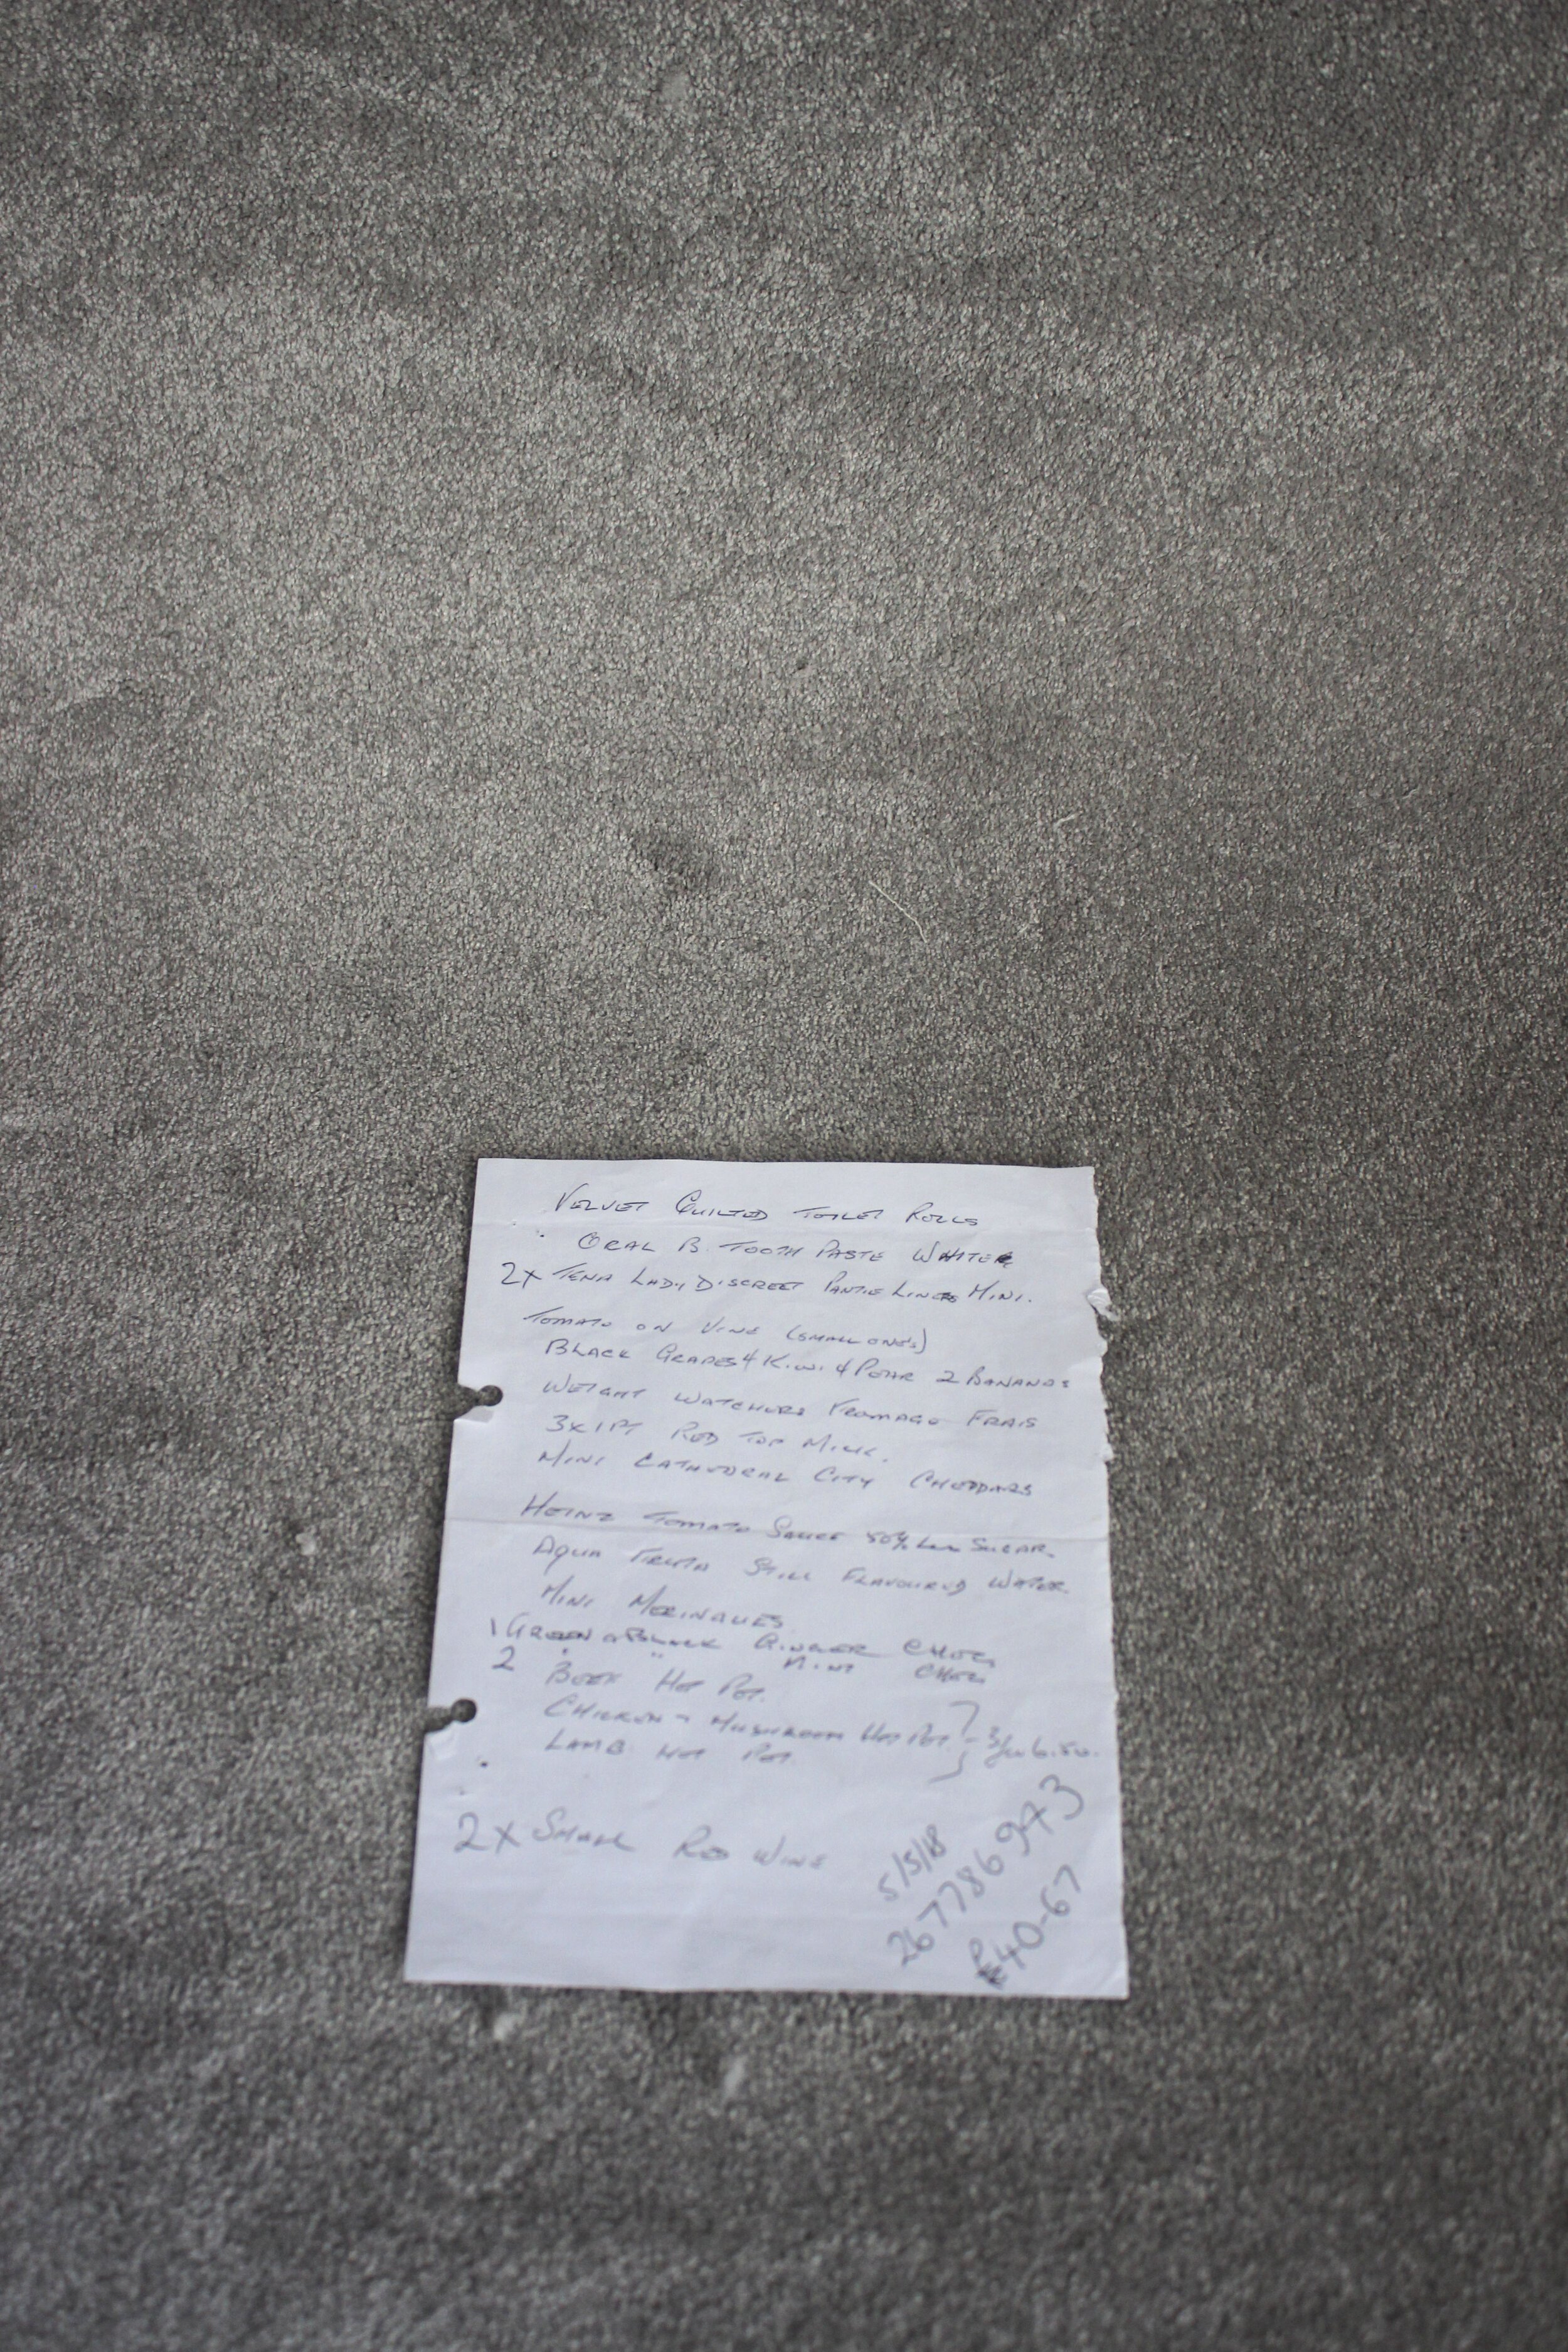 VELVET QUILTED TOILET ROLLS
ORAL B. TOOTH PASTE WHITER
2x TENA LADY DISCREET PANTIE LINERS MINI.
TOMATO ON VINE (SMALL ONE'S)
BLACK GRAPES 4 KIWI 4 PEAR 2 BANANAS
WEIGHT WATCHERS FROMAGE FRAIS
3x1PT RED TOP MILK.
MINI CATHEDRAL CITY CHEDDARS
HEINZ TOMATO SAUCE 50% Less SUGAR.
AQUA FRUTA STILL FLAVOURED WATER
MINI MERINGUES
1 GREEN & BLACK GINGER CHOC
2 " MINT CHOC
BEEF HOT POT.
CHICKEN - MUSHROOM HOT POT
LAMB HOT POT } = 3/ 6.50.
2x SMALL RED WINE
5/5/18
267786973
£40-67